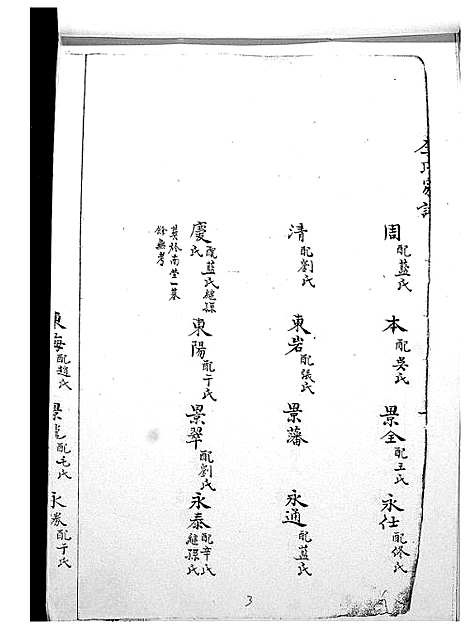 李氏家譜
周 配藍氏 本 配吳氏 景全 配王氏 永仕 配佟氏
清 配劉氏 東岩 配張氏 景藩 永通 配藍氏
慶 配藍氏繼孫氏 東陽 配于氏 景翠 配劉氏 永泰 配辛氏繼孫氏
其於南塋一墓
餘無考
東海 配趙氏 配毛氏 永 配于氏
3